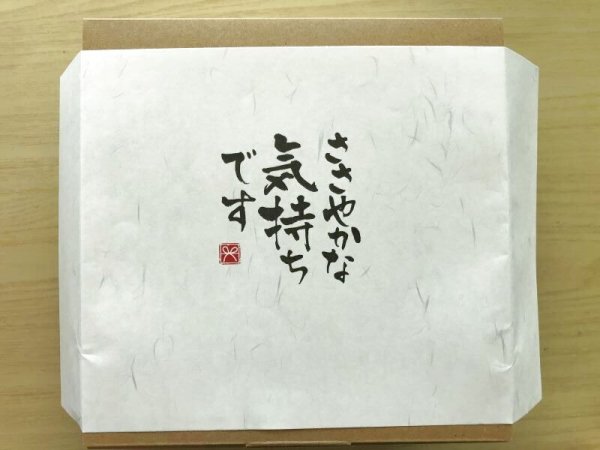 ささやかな
気持ち
です